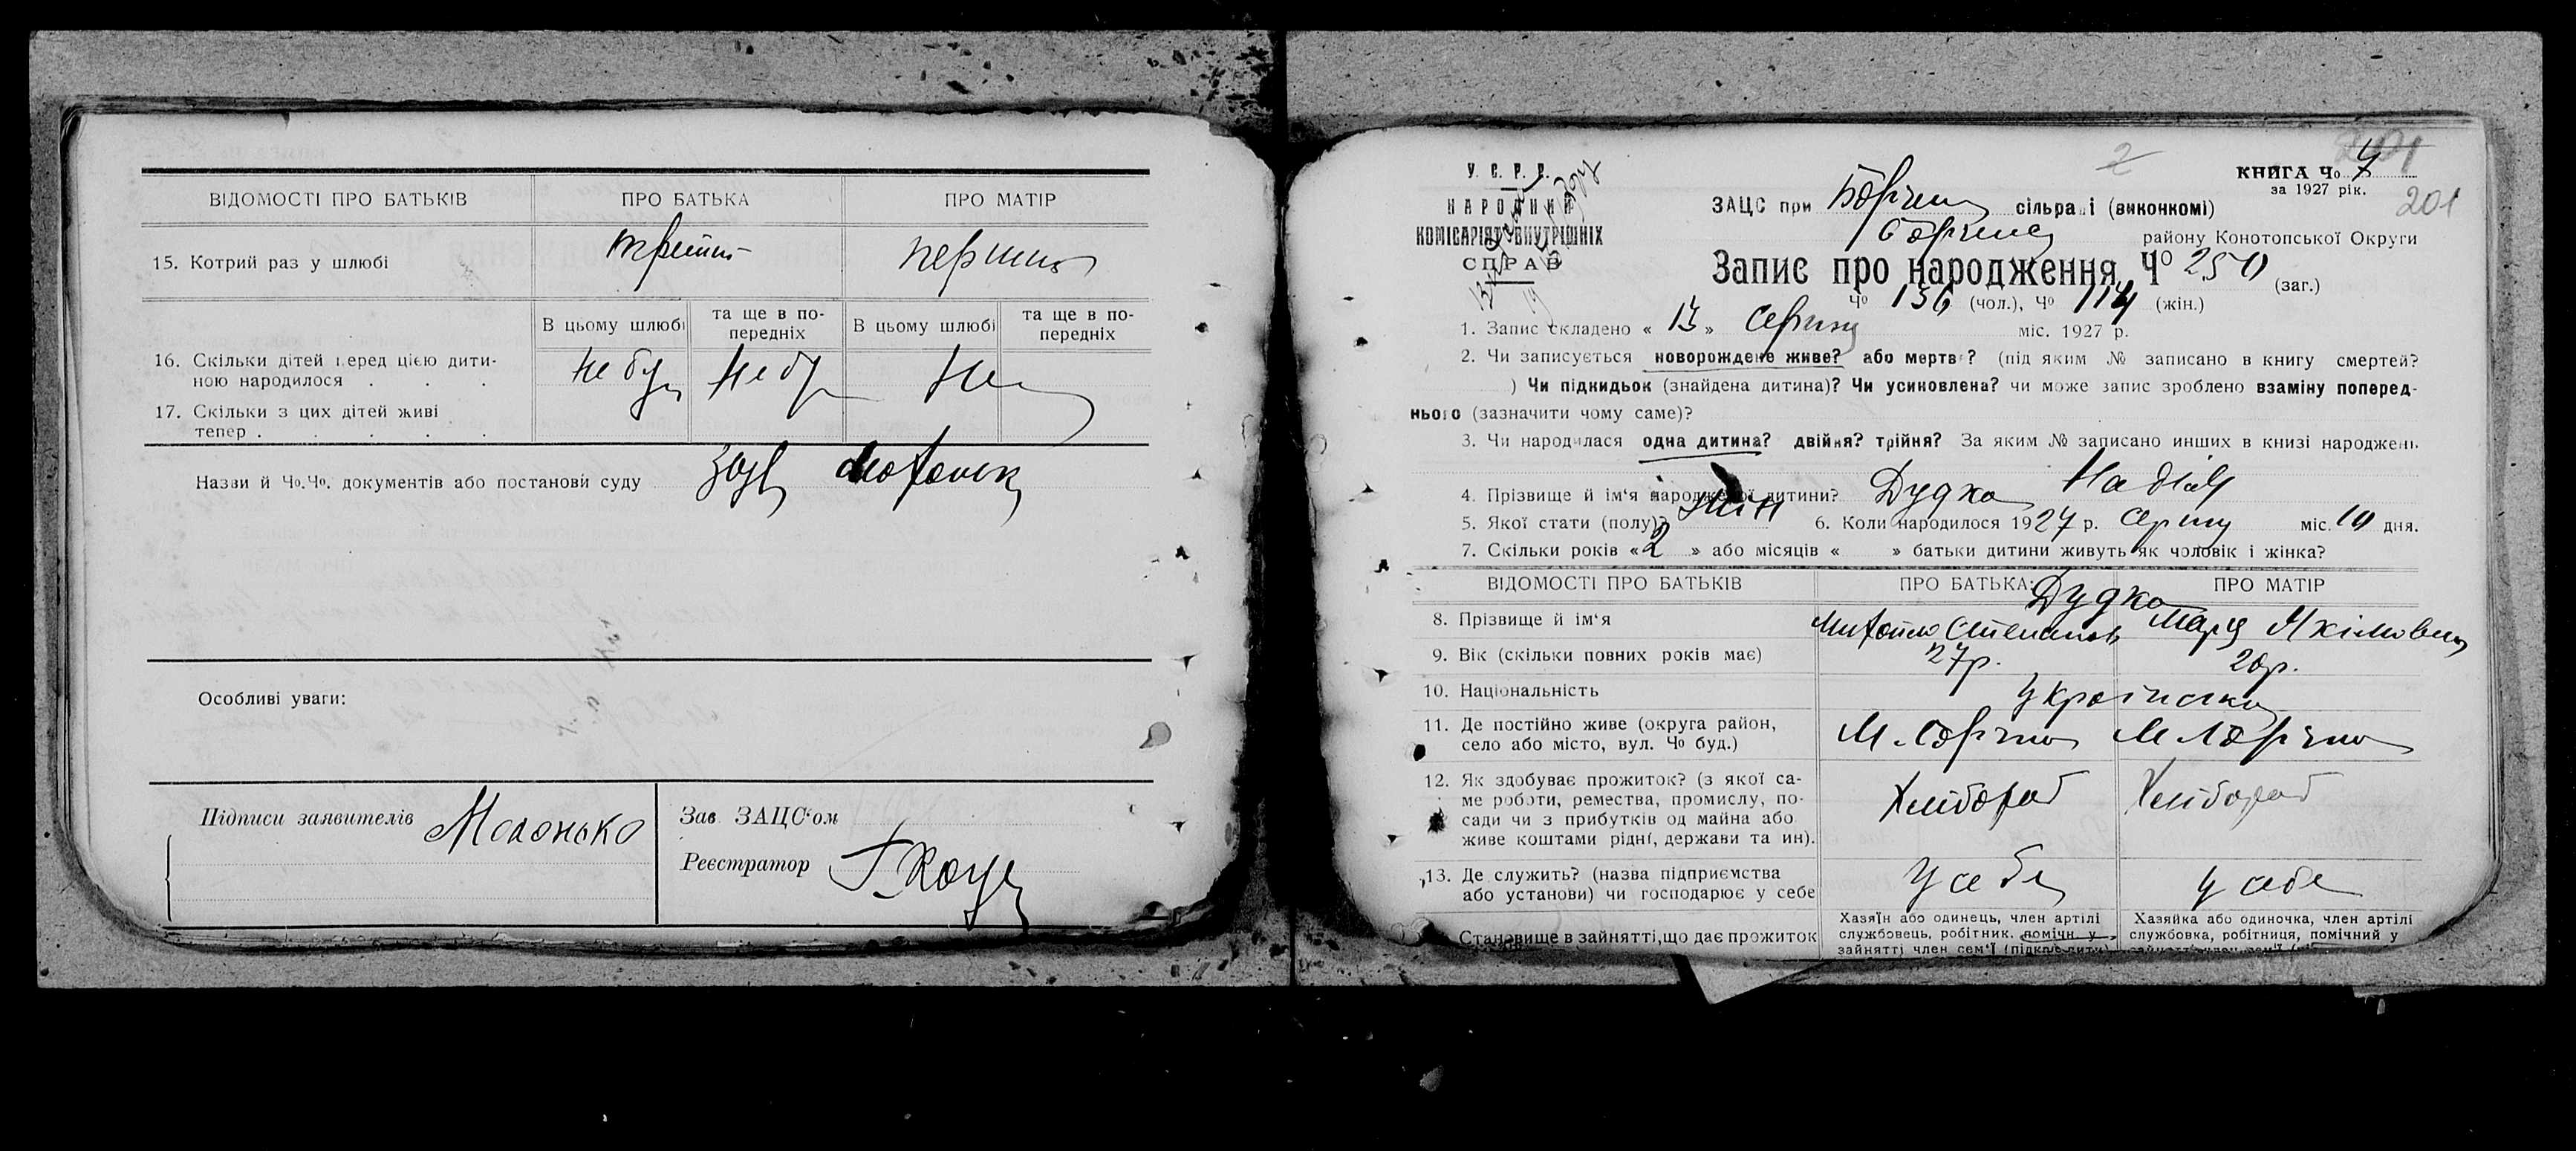 ВІДОМОСТІ ПРО БАТЬКІВ ПРО БАТЬКА ПРО МАТІР
15. Котрий раз у шлюбі
В цьому шлюбі та ще в по-передніх В цьому шлюбі та ще в по-передніх
16. Скільки дітей перед цією дити-
ною народилося . . .
17. Скільки з цих дітей живі
тепер . . . . .
Назви й Чо.Чо. документів або постанови суду
Особливі уваги:
Підписи заявителів
Зав ЗАЦС‘ом
Реєстратор
У. С. Р. Р.
НАРОДНИЙ
КОМІСАРІЯТ ВНУТРІШНІХ
СПРАВ
2
КНИГА Чо
за 1927 рік.
201
ЗАЦС при сільраді (виконкомі)
району Конотопської Округи
Запис про народження Чо 250 (заг.)
Чо 136 (чол.), Чо 114 (жін.)
1. Запис складено « 13 » Серпня міс. 1927 р.
2. Чи записується новорождене живе? або мертве? (під яким № записано в книгу смертей?
) Чи підкидьок (знайдена дитина)? Чи усиновлена? чи може запис зроблено взаміну поперед-
нього (зазначити чому саме)?
3. Чи народилася одна дитина? двійня? трійня? За яким № записано инших в книзі народжень.
4. Прізвище й ім‘я народженої дитини? Дудко Надія
5. Якої стати (полу)? жін 6. Коли народилося 1927 р. Серпня міс. 10 дня.
7. Скільки років « 2 » або місяців « » батьки дитини живуть як чоловік і жінка?
ВІДОМОСТІ ПРО БАТЬКІВ ПРО БАТЬКА: ПРО МАТІР
Дудко
8. Прізвище й ім‘я Михайло Степанов Марія Якімовна
9. Вік (скільки повних років має) 27р. 20р.
10. Національність Українська
11. Де постійно живе (округа район,
село або місто, вул. Чо буд.) М. Борзна М. Борзна
12. Як здобуває прожиток? (з якої са-
ме роботи, ремества, промислу, по-
сади чи з прибутків од майна або
живе коштами рідні, держави та ин). Хлібороб Хлібороб
13. Де служить? (назва підприємства
або установи) чи господарює у себе у себе у себе
Становище в зайнятті, що дає прожиток
Хазяїн або одинець, член артілі
службовець, робітник. помічн. у
зайнятті член сем‘ї
Хазяйка або одиночка, член артілі
службовка, робітниця, помічний у